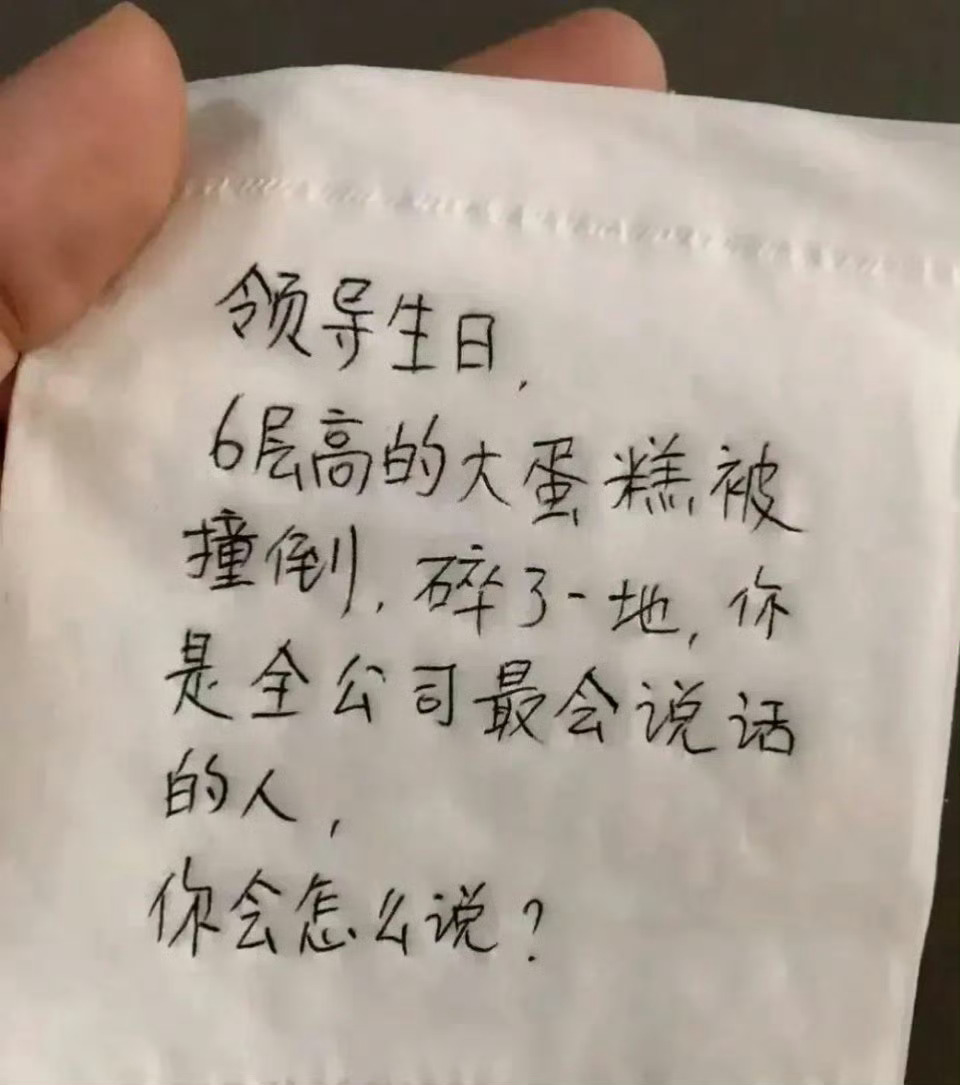 领导生日,
6层高的大蛋糕被
撞倒,碎了一地,你
是全公司最会说话
的人,
你会怎么说?